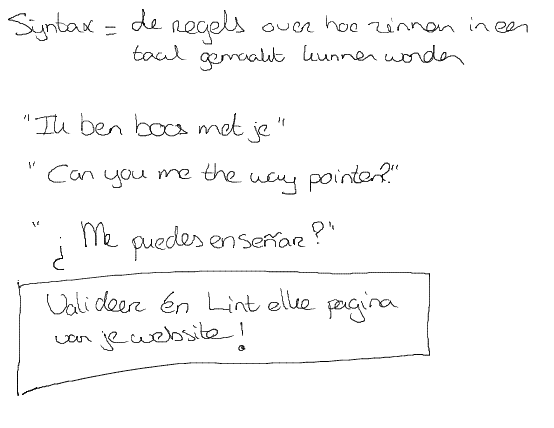 Syntax = de regels over hoe zinnen in een
taal gemaakt kunnen worden
"Ik ben boos met je"
"Can you me the way pointer?"
"¿Me puedes enseñar?"
Valideer én Lint elke pagina
van je website!